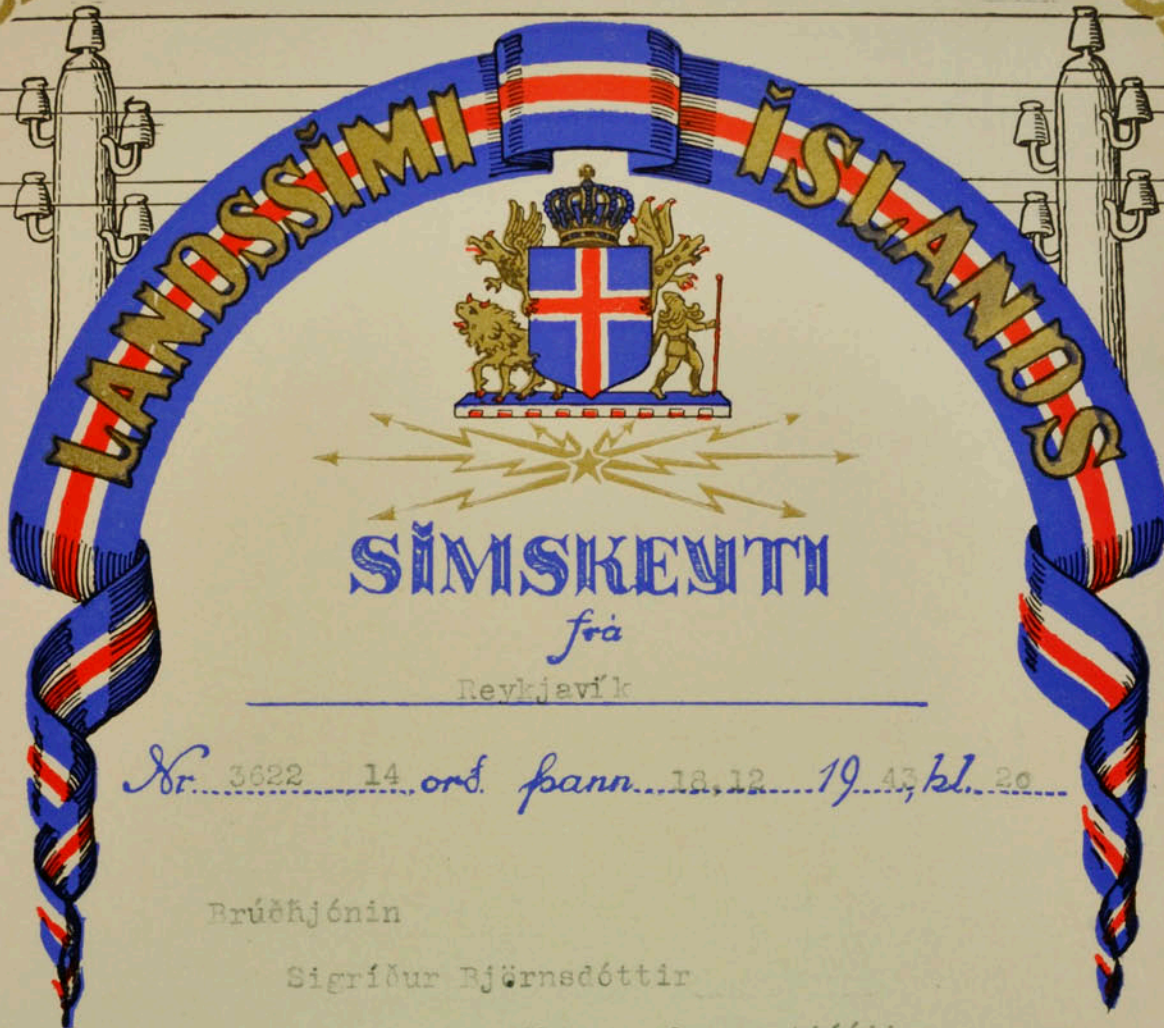 LANDSSÍMI ÍSLANDS
SÍMSKEYTI
frá
Reykjavík
Nr. 3622 14 orð. þann 18,12 19 43, kl. 20
Brúðhjónin
Sigríður Björnsdóttir